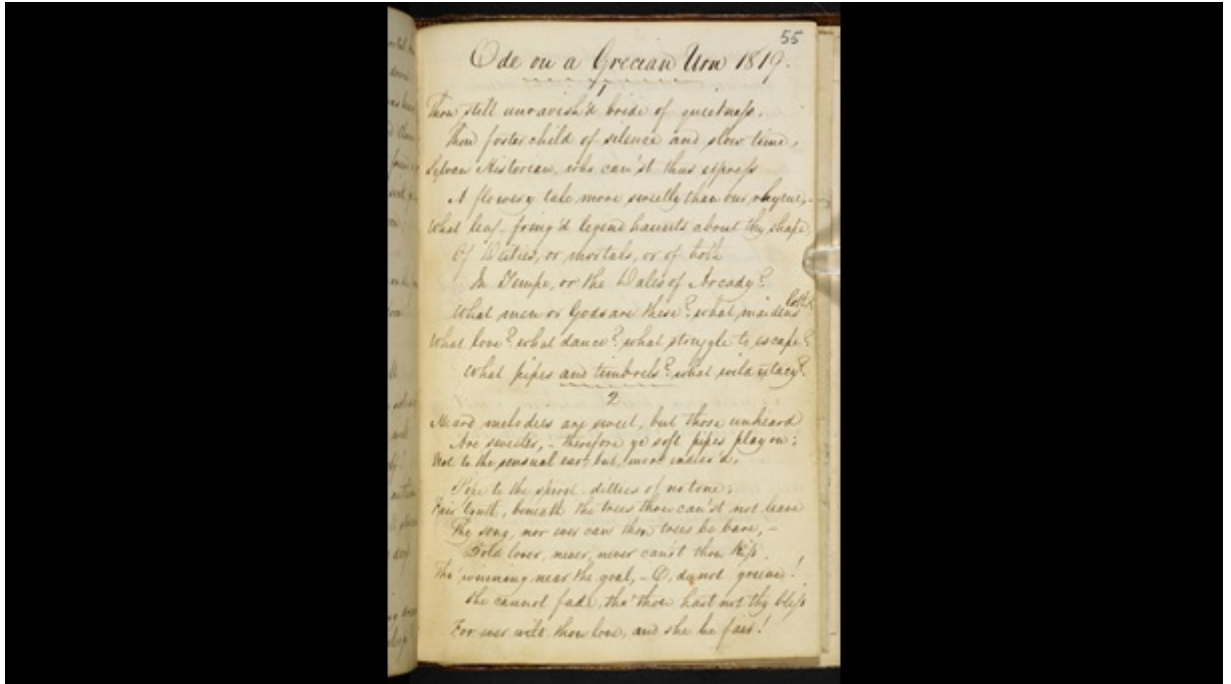 55
Ode on a Grecian Urn 1819.
1
Thou still unravish'd bride of quietness,
Thou foster child of silence and slow time,
Sylvan Historian, who can'st thus express
A flowery tale more sweetly than our rhyme,-
What leaf-fring'd legend haunts about thy shape
Of Deities, or mortals, or of both
In Tempe, or the Dales of Arcady?
loth?
What men or Gods are these? what maidens
What love? what dance? what struggle to escape?
What pipes and timbrels? what wild extacy?
2
Heard melodies are sweet, but those unheard
Are sweeter,- therefore ye soft pipes play on;
Not to the sensual ear, but, more endear'd,
Pipe to the spirit ditties of no tone;
Fair Youth, beneath the trees thou can'st not leave
Thy song, nor ever can those trees be bare,-
Bold lover, never, never can'st thou kiss
Tho' winning near the goal,- O, do not grieve!
She cannot fade, tho' thou hast not thy bliss
For ever wilt thou love, and she be fair!